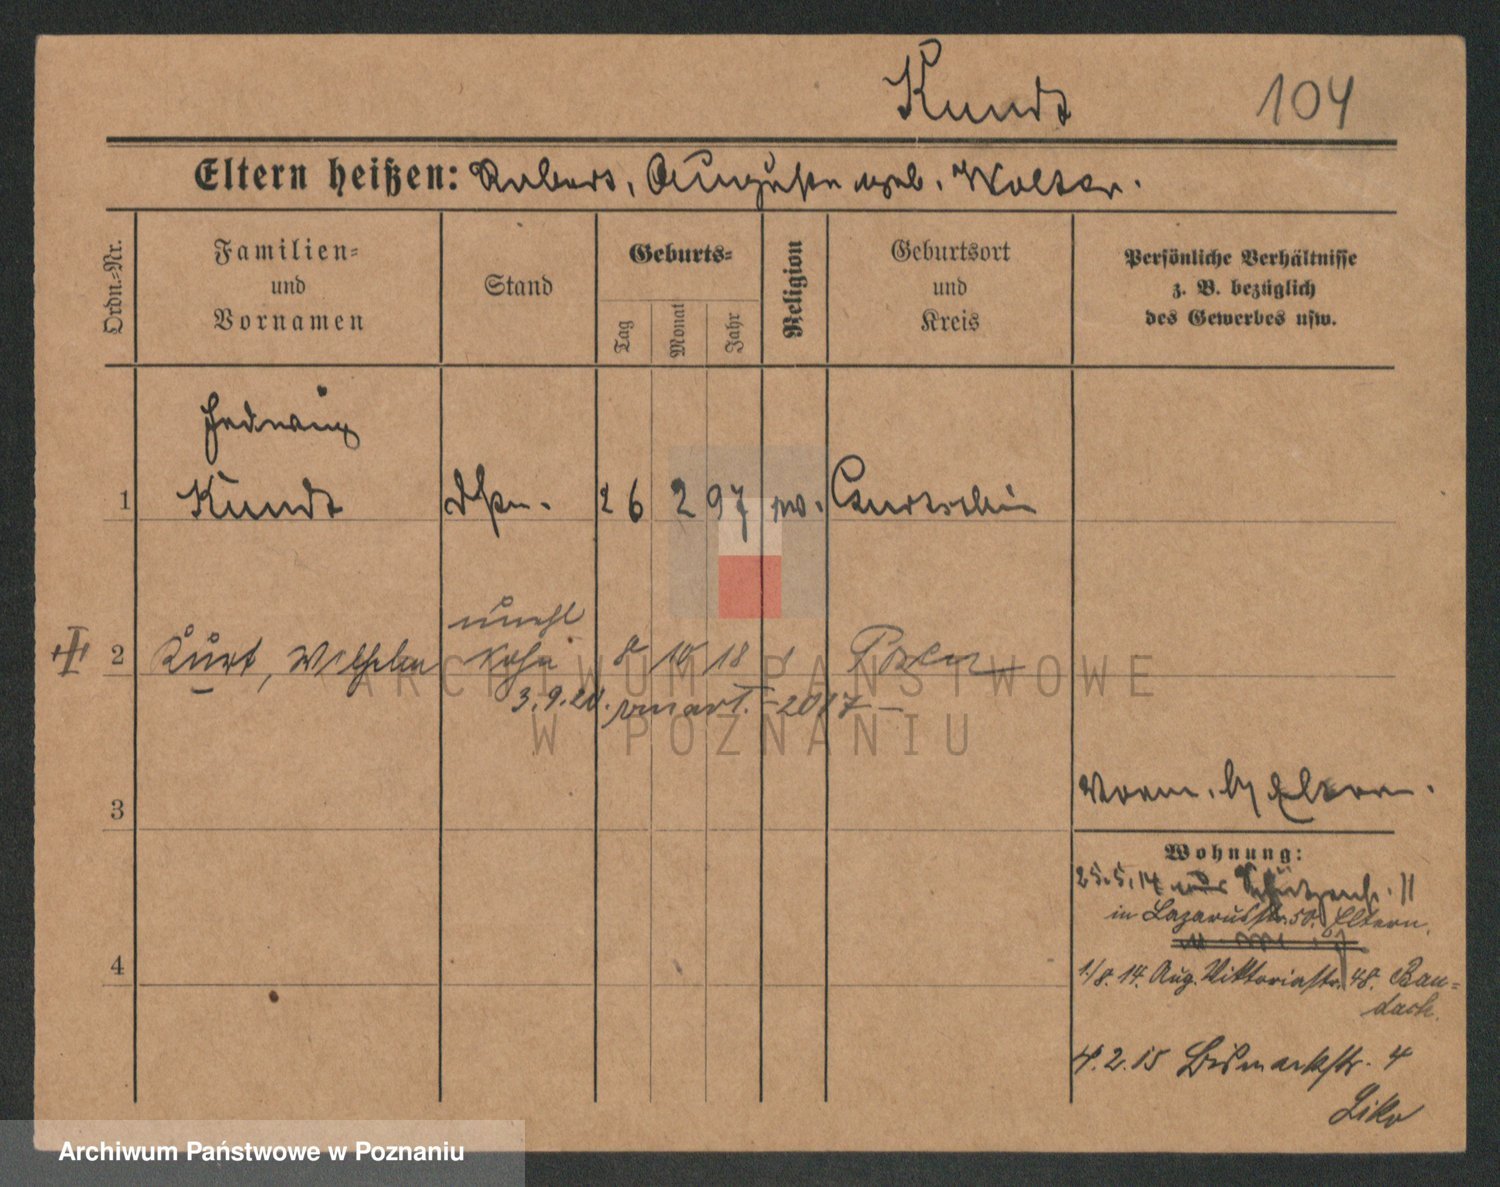 Kundt 104
Eltern heißen: Robert, Auguste geb. Wolter.
Ordn.=Nr.
Familien=
und
Vornamen
Stand
Geburts=
Tag
Monat
Jahr
Religion
Geburtsort
und
Kreis
Persönliche Verhältnisse
z. B. bezüglich
des Gewerbes usw.
Hedwig
1 Kundt 26 2 97
unehl
2 Kurt, Wilhelm 8 10 18 Posen
3.9.20. 2017
3
Vorm. b/ Eltern.
Wohnung:
25.5.14 11
in Lazarusstr. 50, b/ Eltern.
4
1/8. 14. Aug. Viktoriastr. 48. Bau=
dach.
4.2.15 Bismarkstr. 4
ARCHIWUM PAŃSTWOWE
W POZNANIU
Archiwum Państwowe w Poznaniu